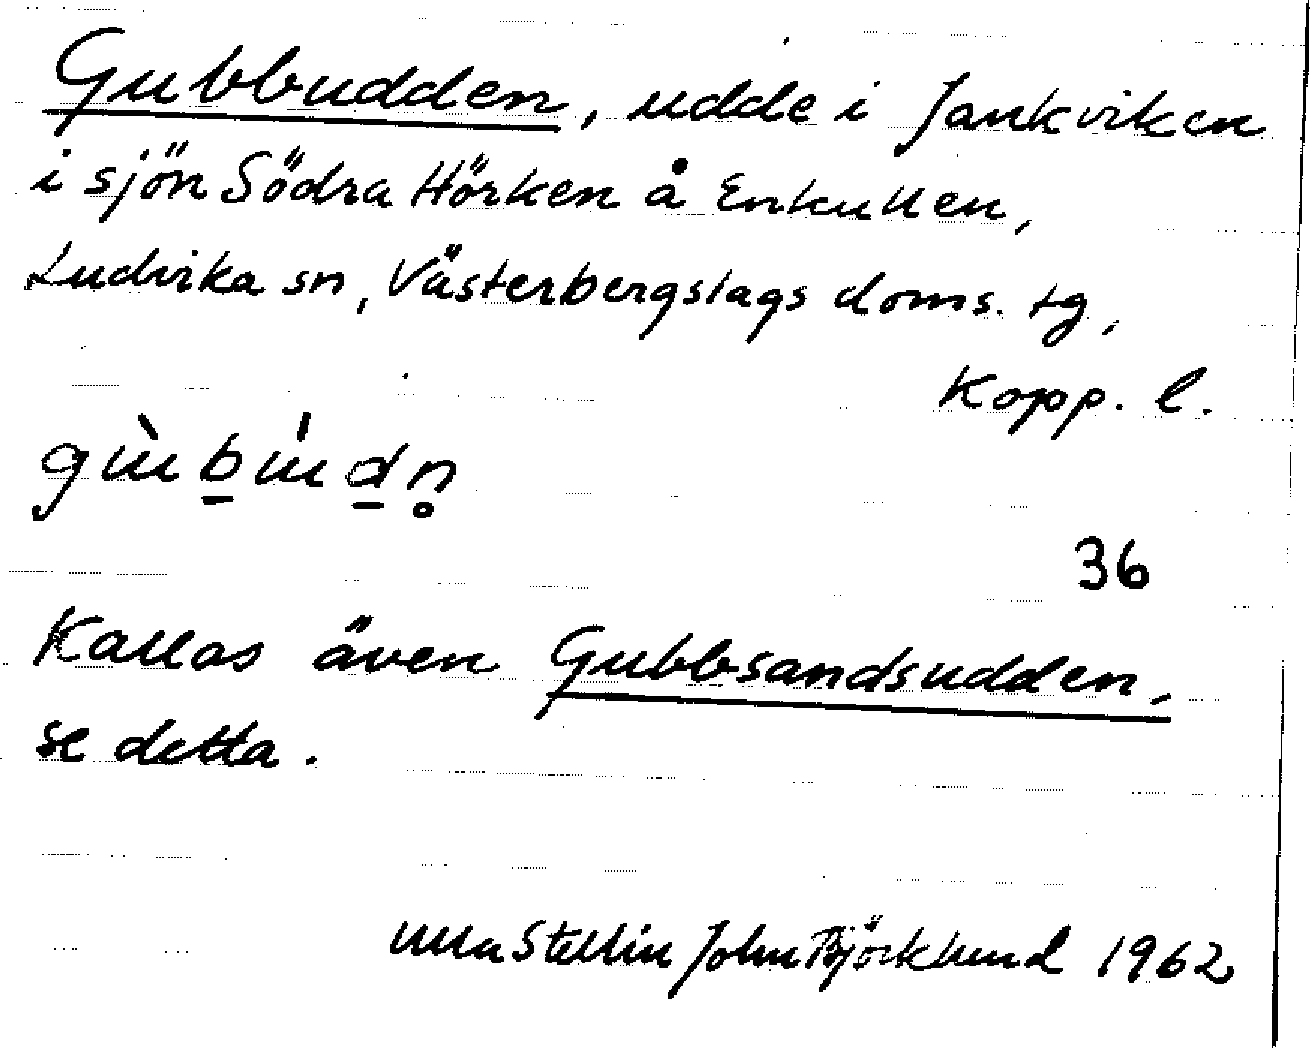 Gubbudden, udde i Jankviken
i sjön Södra Hörken å Enkullen,
Ludvika sn, Västerbergslags doms. tg,
Kopp. l.
36
Kallas även Gubbsandsudden,
se detta.
Ulla Stellin John Björklund 1962